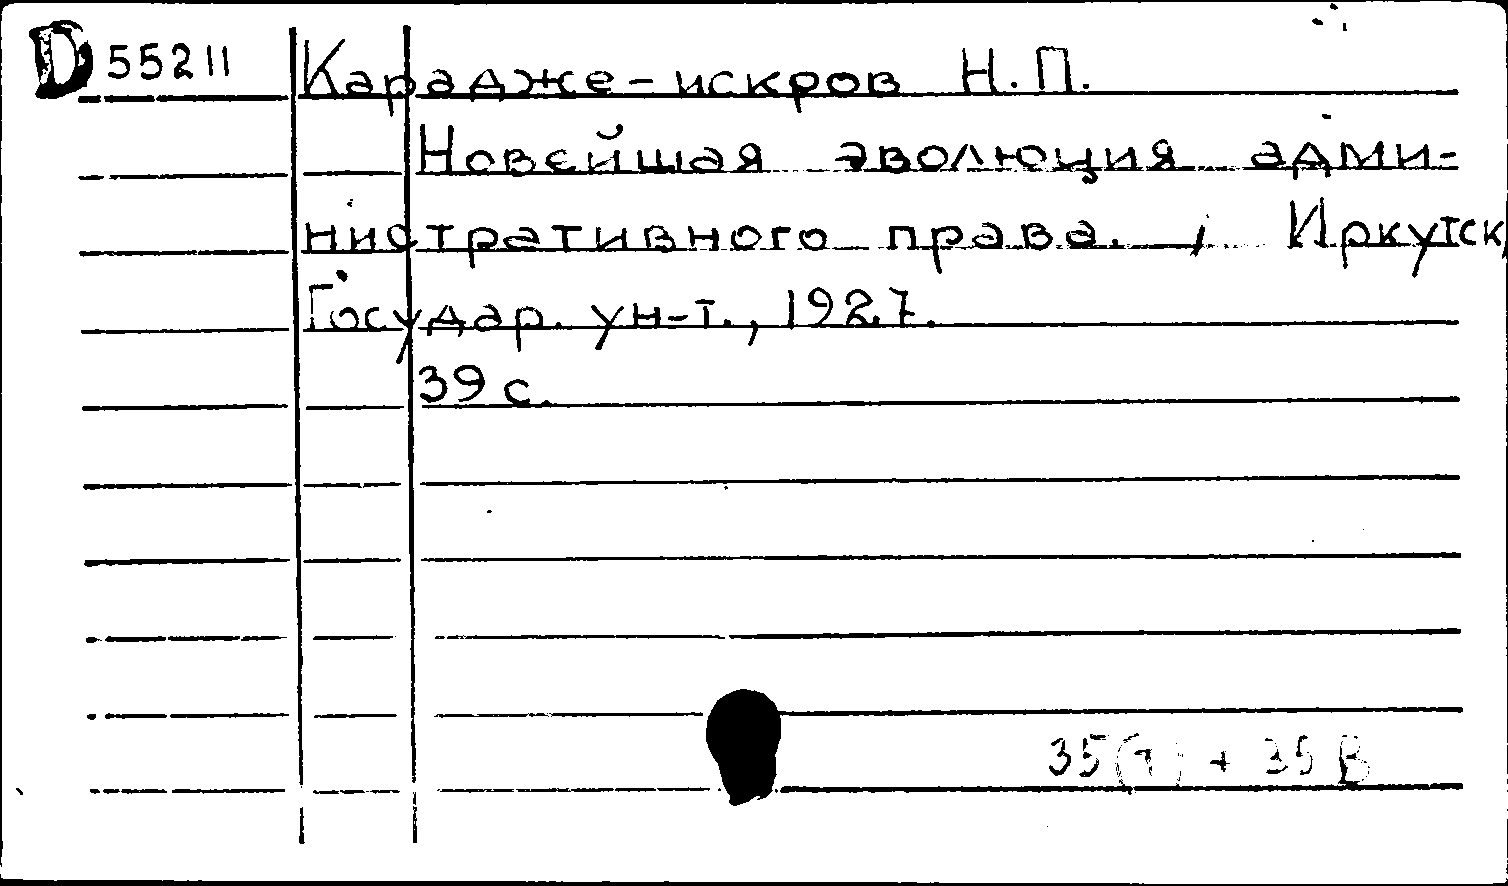 D 55211 Карадже-искров Н.П.
Новейшая эволюция адми-
нистративного права. , Иркутск,
Государ. ун-т., 1927.
39 с.
35 + 35 В